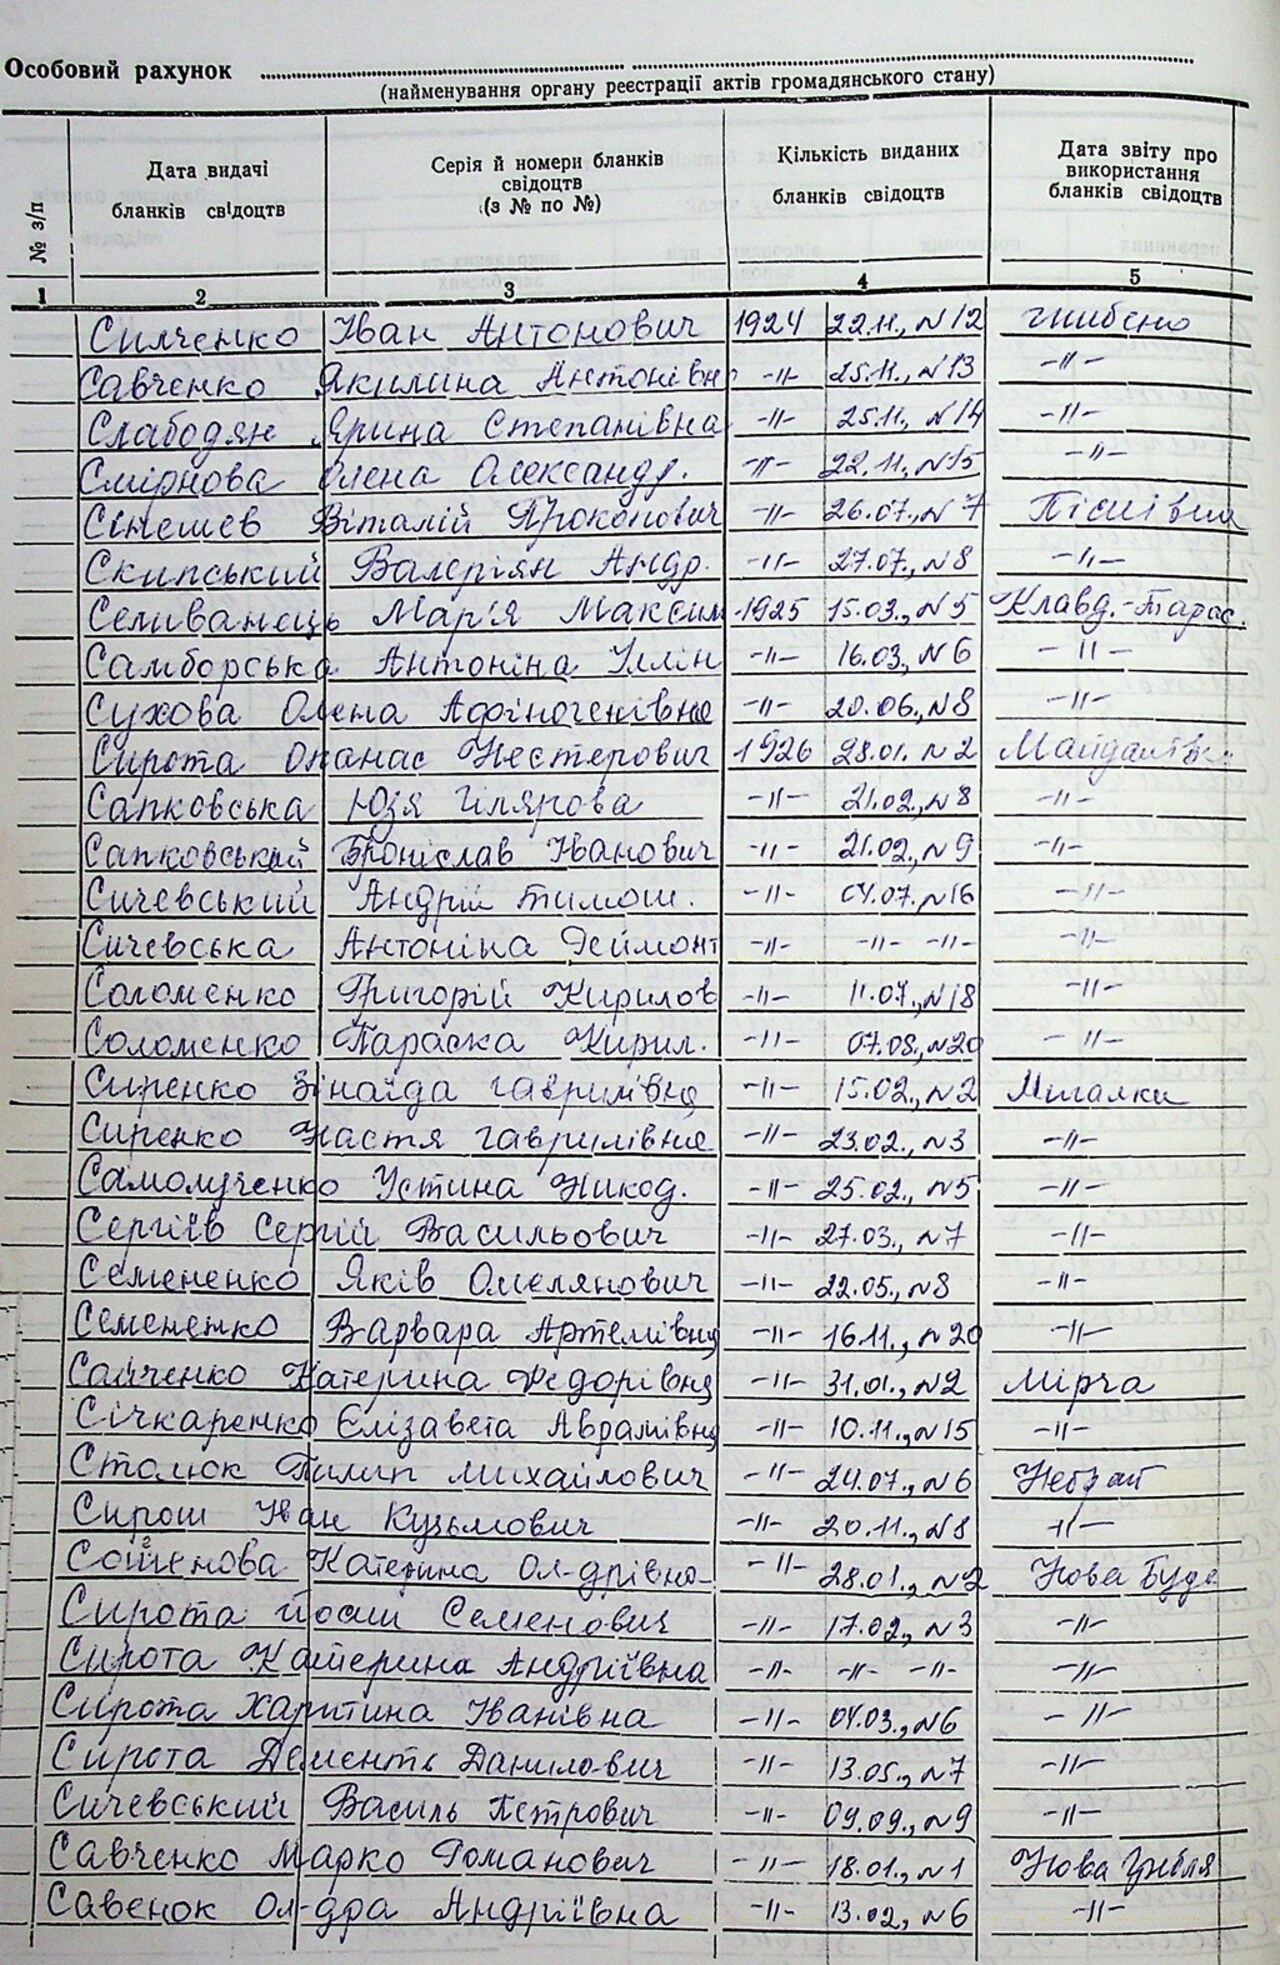 Особовий рахунок
(найменування органу реєстрації актів громадянського стану)
№ з/п Дата видачі бланків свідоцтв Серія й номери бланків свідоцтв (з № по №) Кількість виданих бланків свідоцтв Дата звіту про використання бланків свідоцтв
1 2 3 4 5
Силченко Іван Антонович 1924 22.11., N12
Савченко Якилина Антонівн -"- 25.11., N13 -"-
Слабодян Ярина Степанівна -"- 25.11., N14 -"-
Смірнова Олена Олександр. -"- 22.11., N15 -"-
Сінешев Віталій Прокопович -"- 26.07., N7 Пісківка
Скипський Валеріян Андр. -"- 27.07., N8 -"-
Селиванець Мар'я Максим 1925 15.03., N5 Клавд.-Тарас.
Самборська Антоніна Іллін -"- 16.03., N6 -"-
Сухова Олена Афіногенівна -"- 20.06., N8 -"-
Сирота Опанас Нестерович 1926 28.01. N2 Майданівк
Сапковська Юзя Гілярова -"- 21.02., N8 -"-
Сапковський Броніслав Іванович -"- 21.02., N9 -"-
Сичевський Андрій Тимош. -"- 04.07. N16 -"-
Сичевська Антоніна Реймонт -"- -"- -"- -"-
Соломенко Григорій Кирилов -"- 11.07., N18 -"-
Соломенко Параска Кирил. -"- 07.08., N20 -"-
Сиренко Зінаїда Гаврилівна -"- 15.02., N2 Мигалки
Сиренко Настя Гаврилівна -"- 23.02., N3 -"-
Самолученко Устина Никод. -"- 25.02., N5 -"-
Сергіїв Сергій Васильович -"- 27.03., N7 -"-
Семененко Яків Омелянович -"- 22.05., N8 -"-
Семененко Варвара Артемівна -"- 16.11., N20 -"-
Сайченко Катерина Федорівна -"- 31.01., N2 Мірча
Січкаренко Єлізавета Аврамівна -"- 10.11., N15 -"-
Столюк Пилип Михайлович -"- 24.07., N6 Небрат
Сирош Іван Кузьмович -"- 20.11., N8 -"-
Катерина Ол-дрівна -"- 28.01., N2 Нова Буда
Сирота Йосип Семенович -"- 17.02., N3 -"-
Сирота Катерина Андріївна -"- -"- -"- -"-
Сирота Харитина Іванівна -"- 04.03., N6 -"-
Сирота Дементь Данилович -"- 13.05., N7 -"-
Сичевський Василь Петрович -"- 09.09., N9 -"-
Савченко Марко Романович -"- 18.01., N1 Нова Гребля
Савенок Ол-дра Андріївна -"- 13.02, N6 -"-